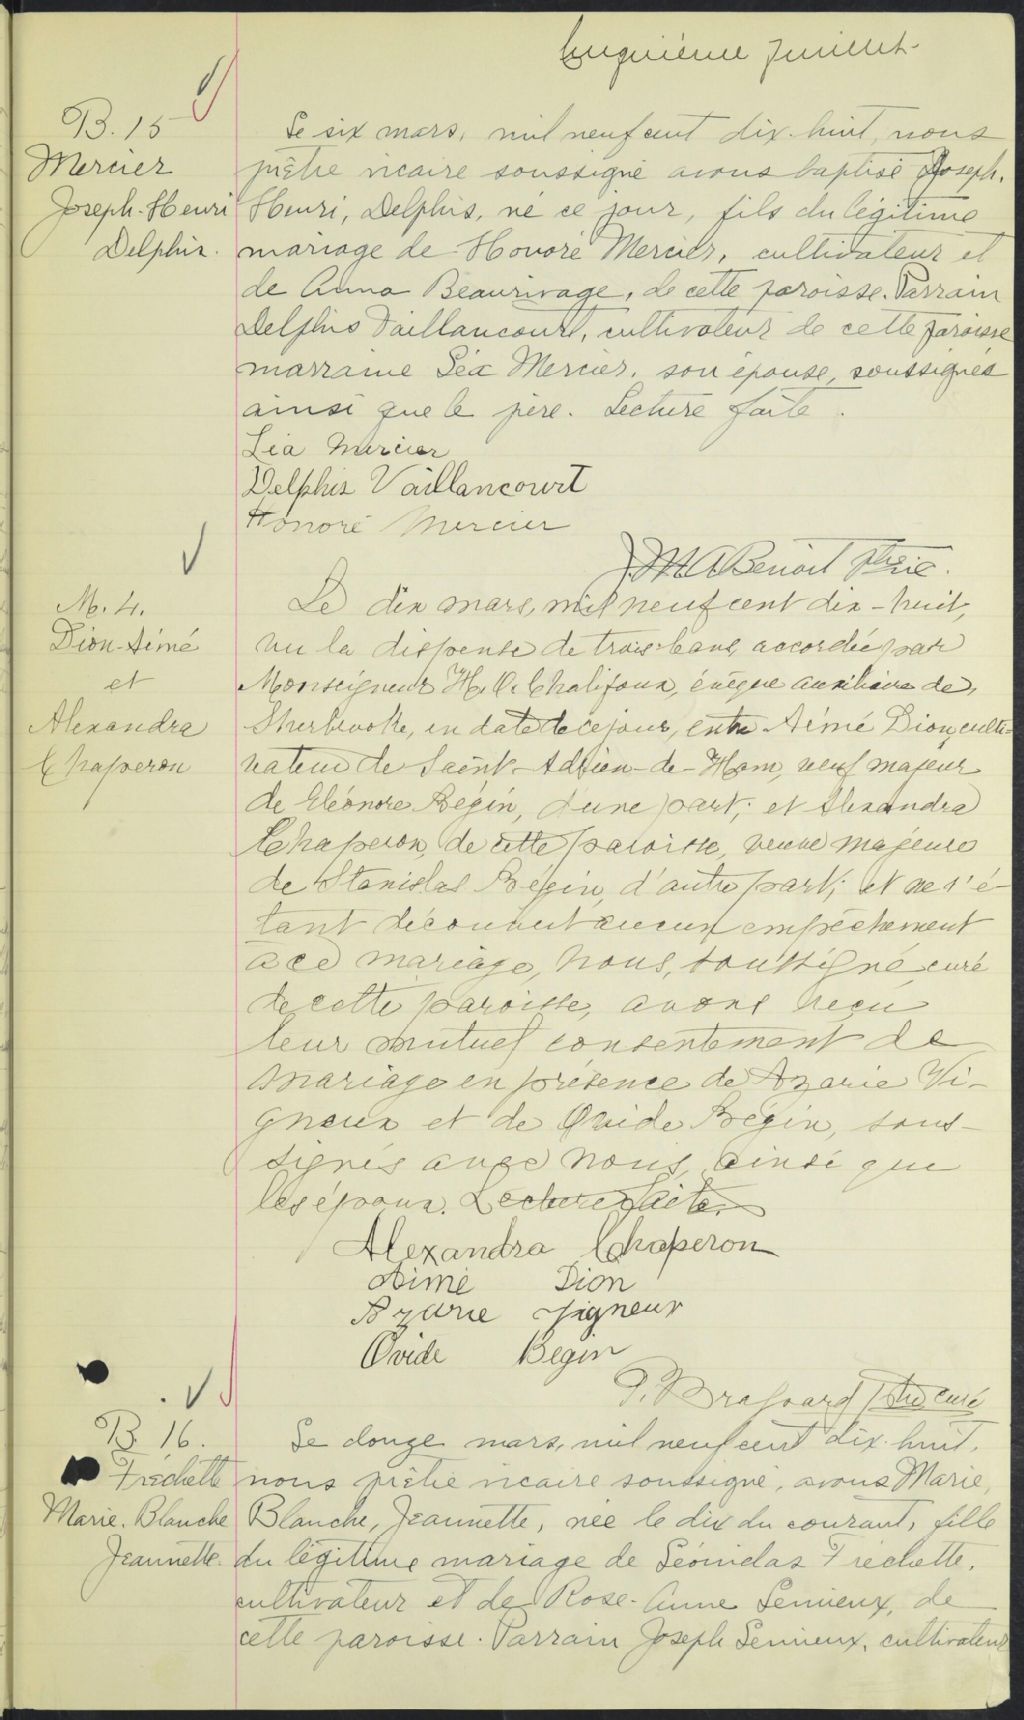 Cinquième feuillet
B. 15
Mercier
Joseph-Henri
Delphis.
Le six mars, mil neuf cent dix-huit, nous
prêtre vicaire soussigné avons baptisé Joseph,
Henri, Delphis, né ce jour, fils du légitime
mariage de Honoré Mercier, cultivateur et
de Anna Beaurivage, de cette paroisse. Parrain
Delphis Vaillancourt, cultivateur de cette paroisse
marraine Léa Mercier, son épouse, soussignés
ainsi que le père. Lecture faite.
Léa Mercier
Delphis Vaillancourt
Honoré Mercier
J.M.A Benoit ptre vic.
M. 4.
Dion-Aimé
et
Alexandra
Chaperon
Le dix mars, mil neuf cent dix-huit,
vu la dispense de trois bans accordée par
Monseigneur H. O. Chalifoux, évêque auxiliaire de
Sherbrooke, en date de ce jour, entre Aimé Dion, culti-
vateur de Saint-Adrien-de-Ham, veuf majeur
de Eléonore Bégin, d'une part; et Alexandra
Chaperon, de cette paroisse, veuve majeure
de Stanislas Bégin, d'autre part; et ne s'é-
tant découvert aucun empêchement
à ce mariage, Nous, soussigné, curé
de cette paroisse, avons reçu
leur mutuel consentement de
mariage en présence de Azarie Vi-
gneux et de Ovide Bégin, sous-
signés avec nous, ainsi que
les époux. Lecture faite.
Alexandra Chaperon
Aimé Dion
Azarie Vigneux
Ovide Begin
P. Brassard ptre curé
B. 16.
Fréchette
Marie, Blanche
Jeannette.
Le douze mars, mil neuf cent dix-huit,
nous prêtre vicaire soussigné, avons Marie,
Blanche, Jeannette, née le dix du courant, fille
du légitime mariage de Léonidas Fréchette,
cultivateur et de Rose-Anne Lemieux, de
cette paroisse. Parrain Joseph Lemieux, cultivateur